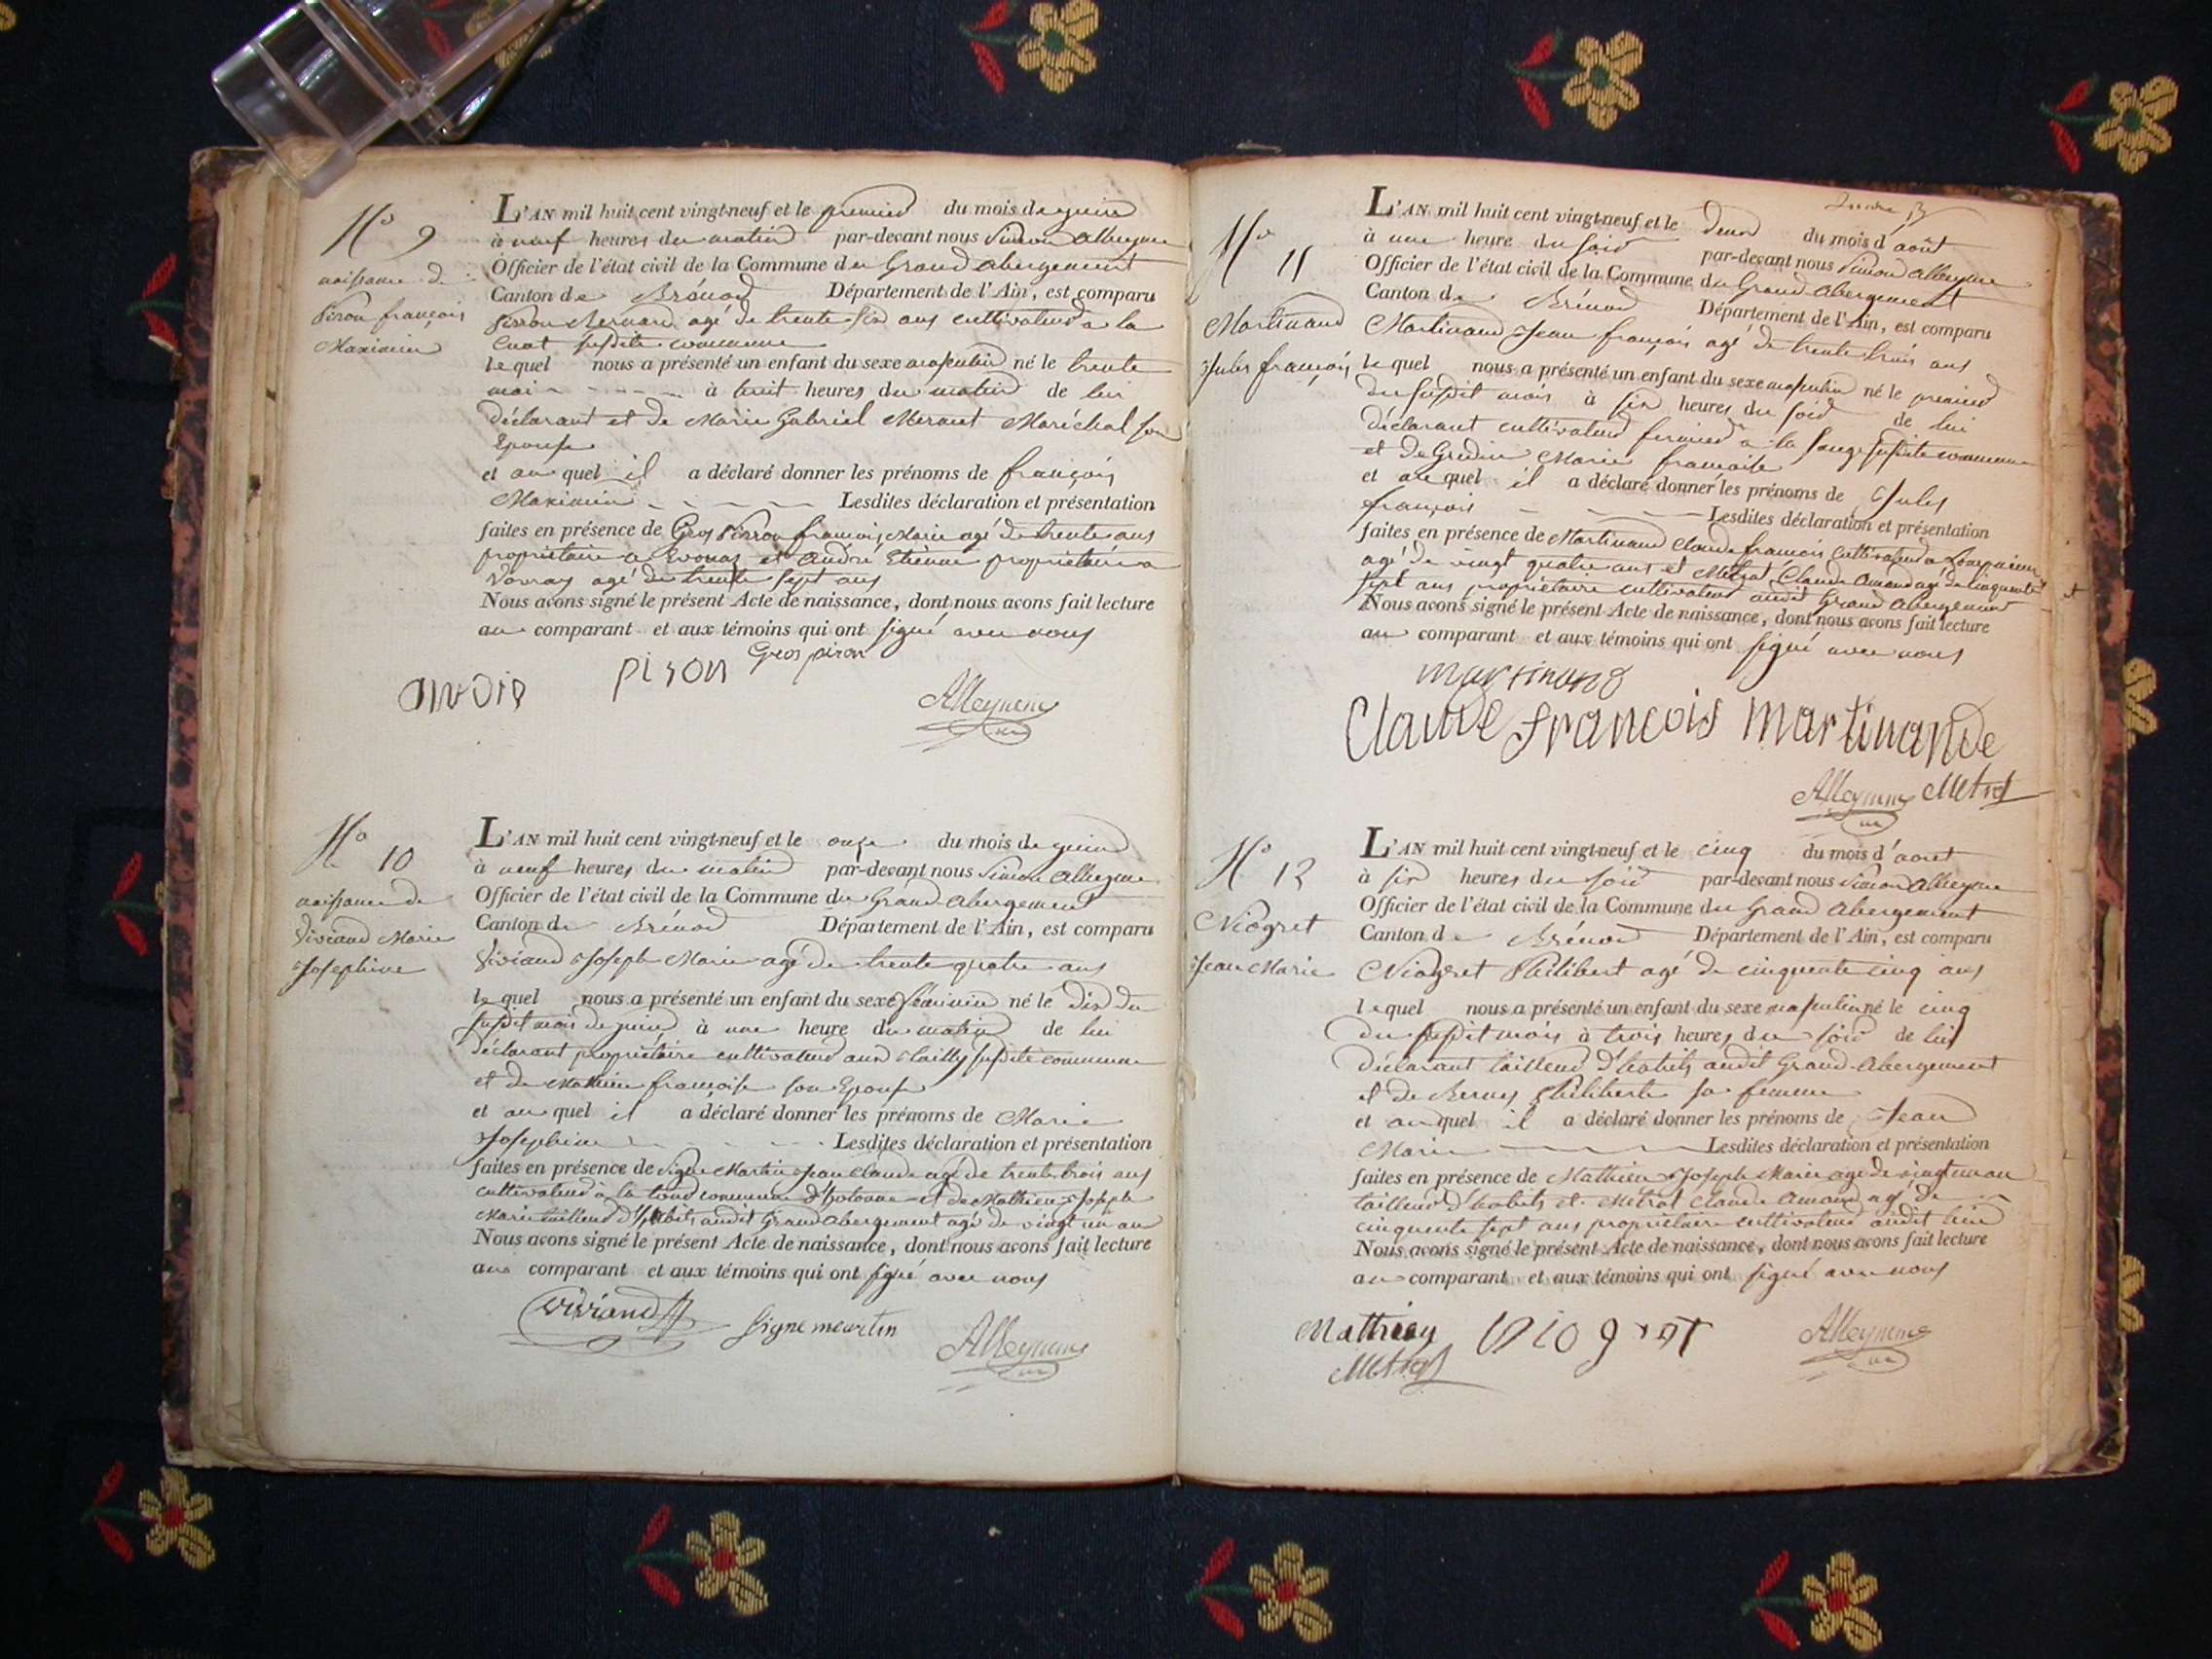 N° 9
naissance de
Piron françois
Maximin
L'AN mil huit cent vingt-neuf et le premier du mois de juin
à neuf heures du matin par-devant nous Simon Alleyme
Officier de l'état civil de la Commune du Grand abergement
Canton de Brénod Département de l'Ain, est comparu
Pirron Bernard agé de trente six ans cultivateur a la
susdite commune
lequel nous a présenté un enfant du sexe masculin né le trente
mai à huit heures du matin de lui
déclarant et de Marie Gabriel Maréchal son
Epouse
et au quel il a déclaré donner les prénoms de françois
Maximin Lesdites déclaration et présentation
faites en présence de Gros Pirron françois Marie agé de trente ans
propriétaire a et André Etienne propriétaire a
agé de trente sept ans
Nous avons signé le présent Acte de naissance, dont nous avons fait lecture
au comparant et aux témoins qui ont signé avec nous
piron Gros piron
Alleyme
N° 10
naissance de
Viviand Marie
Josephine
L'AN mil huit cent vingt-neuf et le onze du mois de juin
à neuf heures du matin par-devant nous Simon Alleyme
Officier de l'état civil de la Commune du Grand-abergement
Canton de Brénod Département de l'Ain, est comparu
Viviand Joseph Marie agé de trente quatre ans
lequel nous a présenté un enfant du sexe féminin né le dix du
susdit mois de juin à une heure du matin de lui
déclarant propriétaire cultivateur susdite commune
et de Mathieu françoise son Epouse
et au quel il a déclaré donner les prénoms de Marie
Josephine Lesdites déclaration et présentation
faites en présence de Signe Martin Jean Claude agé de trente trois ans
cultivateur à la commune d'hotonne et de Mathieu Joseph
Marie tailleur d'habits audit Grand abergement agé de vingt un an
Nous avons signé le présent Acte de naissance, dont nous avons fait lecture
au comparant et aux témoins qui ont signé avec nous
Viviand Signe martin Alleyme
N° 11
Martinand
Jules françois
L'AN mil huit cent vingt-neuf et le deux du mois d'août
à une heure du soir par-devant nous Simon Alleyme
Officier de l'état civil de la Commune du Grand abergement
Canton de Brénod Département de l'Ain, est comparu
Martinand Jean françois agé de trente trois ans
lequel nous a présenté un enfant du sexe masculin né le premier
du susdit mois à six heures du soir de lui
déclarant cultivateur fermier à la susdite commune
et de Marie françoise
et au quel il a déclaré donner les prénoms de Jules
françois Lesdites déclaration et présentation
faites en présence de Martinand Claude françois cultivateur a
agé de vingt quatre ans et Métrat Claude Amand agé de cinquante
sept ans propriétaire cultivateur audit Grand abergement
Nous avons signé le présent Acte de naissance, dont nous avons fait lecture
au comparant et aux témoins qui ont signé avec nous
martinand
Claude françois martinande
Alleyme Métrat
N° 12
Niogret
Jean Marie
L'AN mil huit cent vingt-neuf et le cinq du mois d'aout
à six heures du soir par-devant nous Simon Alleyme
Officier de l'état civil de la Commune du Grand abergement
Canton de Brénod Département de l'Ain, est comparu
Niogret Philibert agé de cinquante cinq ans
lequel nous a présenté un enfant du sexe masculin né le cinq
du susdit mois à trois heures du soir de lui
déclarant tailleur d'habits audit Grand-abergement
et de Philiberte sa femme
et au quel il a déclaré donner les prénoms de Jean
Marie Lesdites déclaration et présentation
faites en présence de Mathieu Joseph Marie agé de vingt un an
tailleur d'habits et Métrat Claude Amand agé de
cinquante sept ans propriétaire cultivateur audit lieu
Nous avons signé le présent Acte de naissance, dont nous avons fait lecture
au comparant et aux témoins qui ont signé avec nous
Mathieu Niogret Alleyme
Métrat